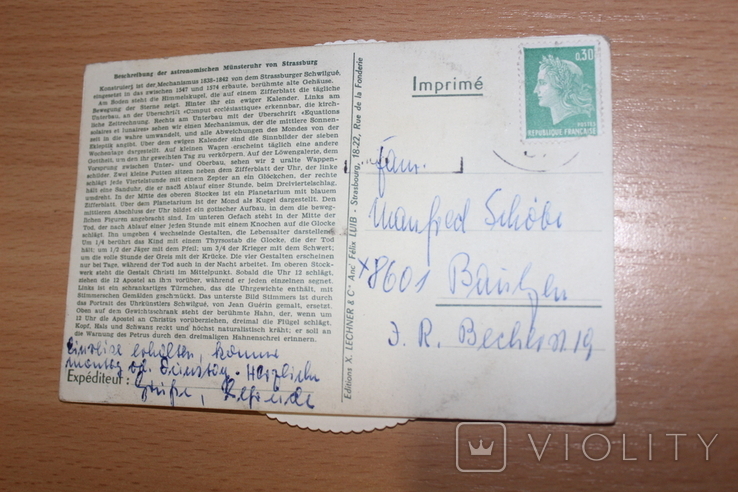 Beschreibung der astronomischen Münsteruhr von Strassburg
Konstruiert ist der Mechanismus 1838-1842 von dem Strassburger Schwilgué,
eingesetzt in das zwischen 1547 und 1574 erbaute, berühmte alte Gehäuse.
Am Boden steht die Himmelskugel, die auf einem Zifferblatt die tägliche
Bewegung der Sterne zeigt. Hinter ihr ein ewiger Kalender. Links am
Unterbau, an der Überschrift «Comput ecclésiastique» erkennbar, die kirch-
liche Zeitrechnung. Rechts am Unterbau mit der Überschrift «Equations
solaires et lunaires» sehen wir einen Mechanismus, der die mittlere Sonnen-
zeit in die wahre umwandelt, und alle Abweichungen des Mondes von der
Ekliptik angibt. Über dem ewigen Kalender sind die Sinnbilder der sieben
Wochentage dargestellt. Auf kleinen Wagen erscheint täglich eine andere
Gottheit, um den ihr geweihten Tag zu verkörpern. Auf der Löwengalerie, dem
Vorsprung zwischen Unter- und Oberbau, sehen wir 2 uralte Wappen-
schilder. Zwei kleine Putten sitzen neben dem Zifferblatt der Uhr, der linke
schlägt jede Viertelstunde mit einem Zepter an ein Glöckchen, der rechte
hält eine Sanduhr, die er nach Ablauf einer Stunde, beim Dreiviertelschlag,
umdreht. In der Mitte des oberen Stockes ist ein Planetarium mit blauem
Zifferblatt. Über dem Planetarium ist der Mond als Kugel dargestellt. Den
mittleren Abschluss der Uhr bildet ein gotischer Aufbau, in dem die beweg-
lichen Figuren angebracht sind. Im unteren Gefach steht in der Mitte der
Tod, der nach Ablauf einer jeden Stunde mit einem Knochen auf die Glocke
schlägt. Ihn umgeben 4 wechselnde Gestalten, die Lebensalter darstellend.
Um 1/4 berührt das Kind mit einem Thyrsostab die Glocke, die der Tod
hält; um 1/2 der Jäger mit dem Pfeil; um 3/4 der Krieger mit dem Schwert;
um die volle Stunde der Greis mit der Krücke. Die vier Gestalten erscheinen
nur bei Tage, während der Tod auch in der Nacht arbeitet. Im oberen Stock-
werk steht die Gestalt Christi im Mittelpunkt. Sobald die Uhr 12 schlägt,
ziehen die 12 Apostel an ihm vorüber, während er jeden einzelnen segnet.
Links ist ein schrankartiges Türmchen, das die Uhrgewichte enthält, mit
Stimmerschen Gemälden geschmückt. Das unterste Bild Stimmers ist durch
das Portrait des Uhrkünstlers Schwilgué, von Jean Guérin gemalt, ersetzt.
Oben auf dem Gewichtsschrank steht der berühmte Hahn, der, wenn um
12 Uhr die Apostel an Christus vorüberziehen, dreimal die Flügel schlägt.
Kopf, Hals und Schwanz reckt und höchst naturalistisch kräht; er soll an
die Warnung des Petrus durch den dreimaligen Hahnenschrei erinnern.
erhalten, komme
Montag od. Dienstag. Herzliche
Expéditeur :
Grüße,
Editions X. LECHNER & Cie Anc. Félix LUIB - Strasbourg, 18-22, Rue de la Fonderie
Imprimé
0,30
POSTES
REPUBLIQUE FRANÇAISE
Fam.
Manfred Schöbe
X8601 Bautzen
J. R. Becherstr 19
VIOLITY